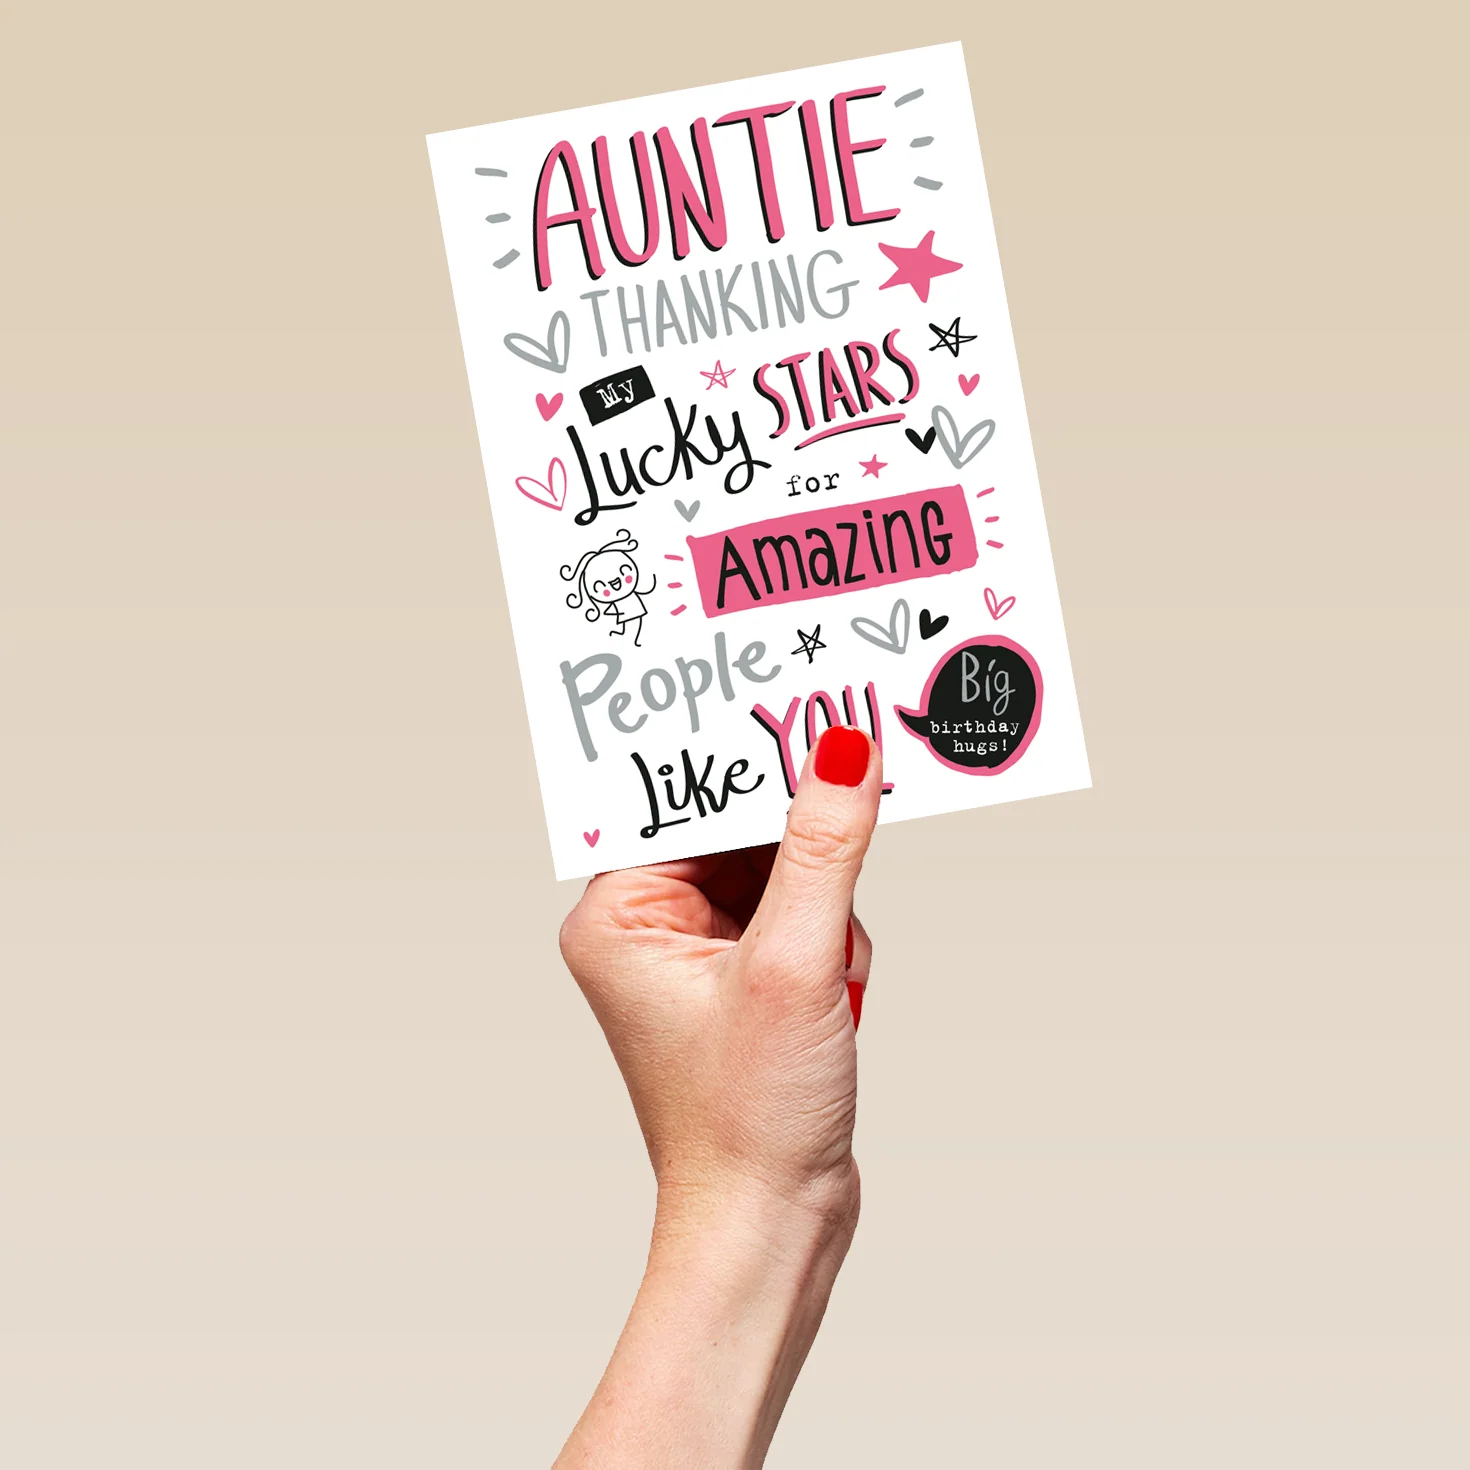 AUNTIE
THANKING
My
Lucky STARS
for
Amazing
People
Like YOU
Big
birthday
hugs!